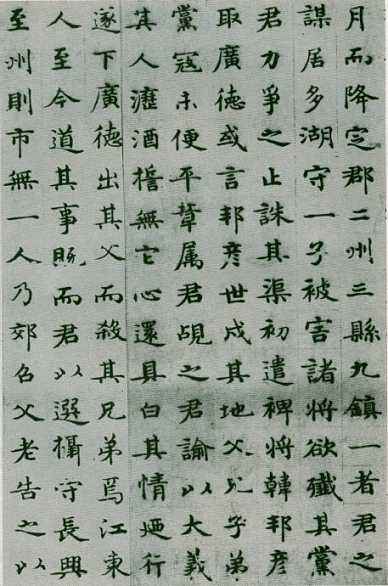 月而降定郡二州三縣九鎮一者君之
謀居多湖守一子被害諸將欲殲其黨
君力爭之止誅其渠初遣裨將韓邦彥
取廣德或言邦彥世戍其地父兄子弟
黨寇未便平章属君覘之君諭以大義
其人灑酒誓無它心還具白其情廼行
遂下廣德出其父而殺其兄弟焉江東
人至今道其事既而君以選攝守長興
至州則市無一人乃郊召父老告之以